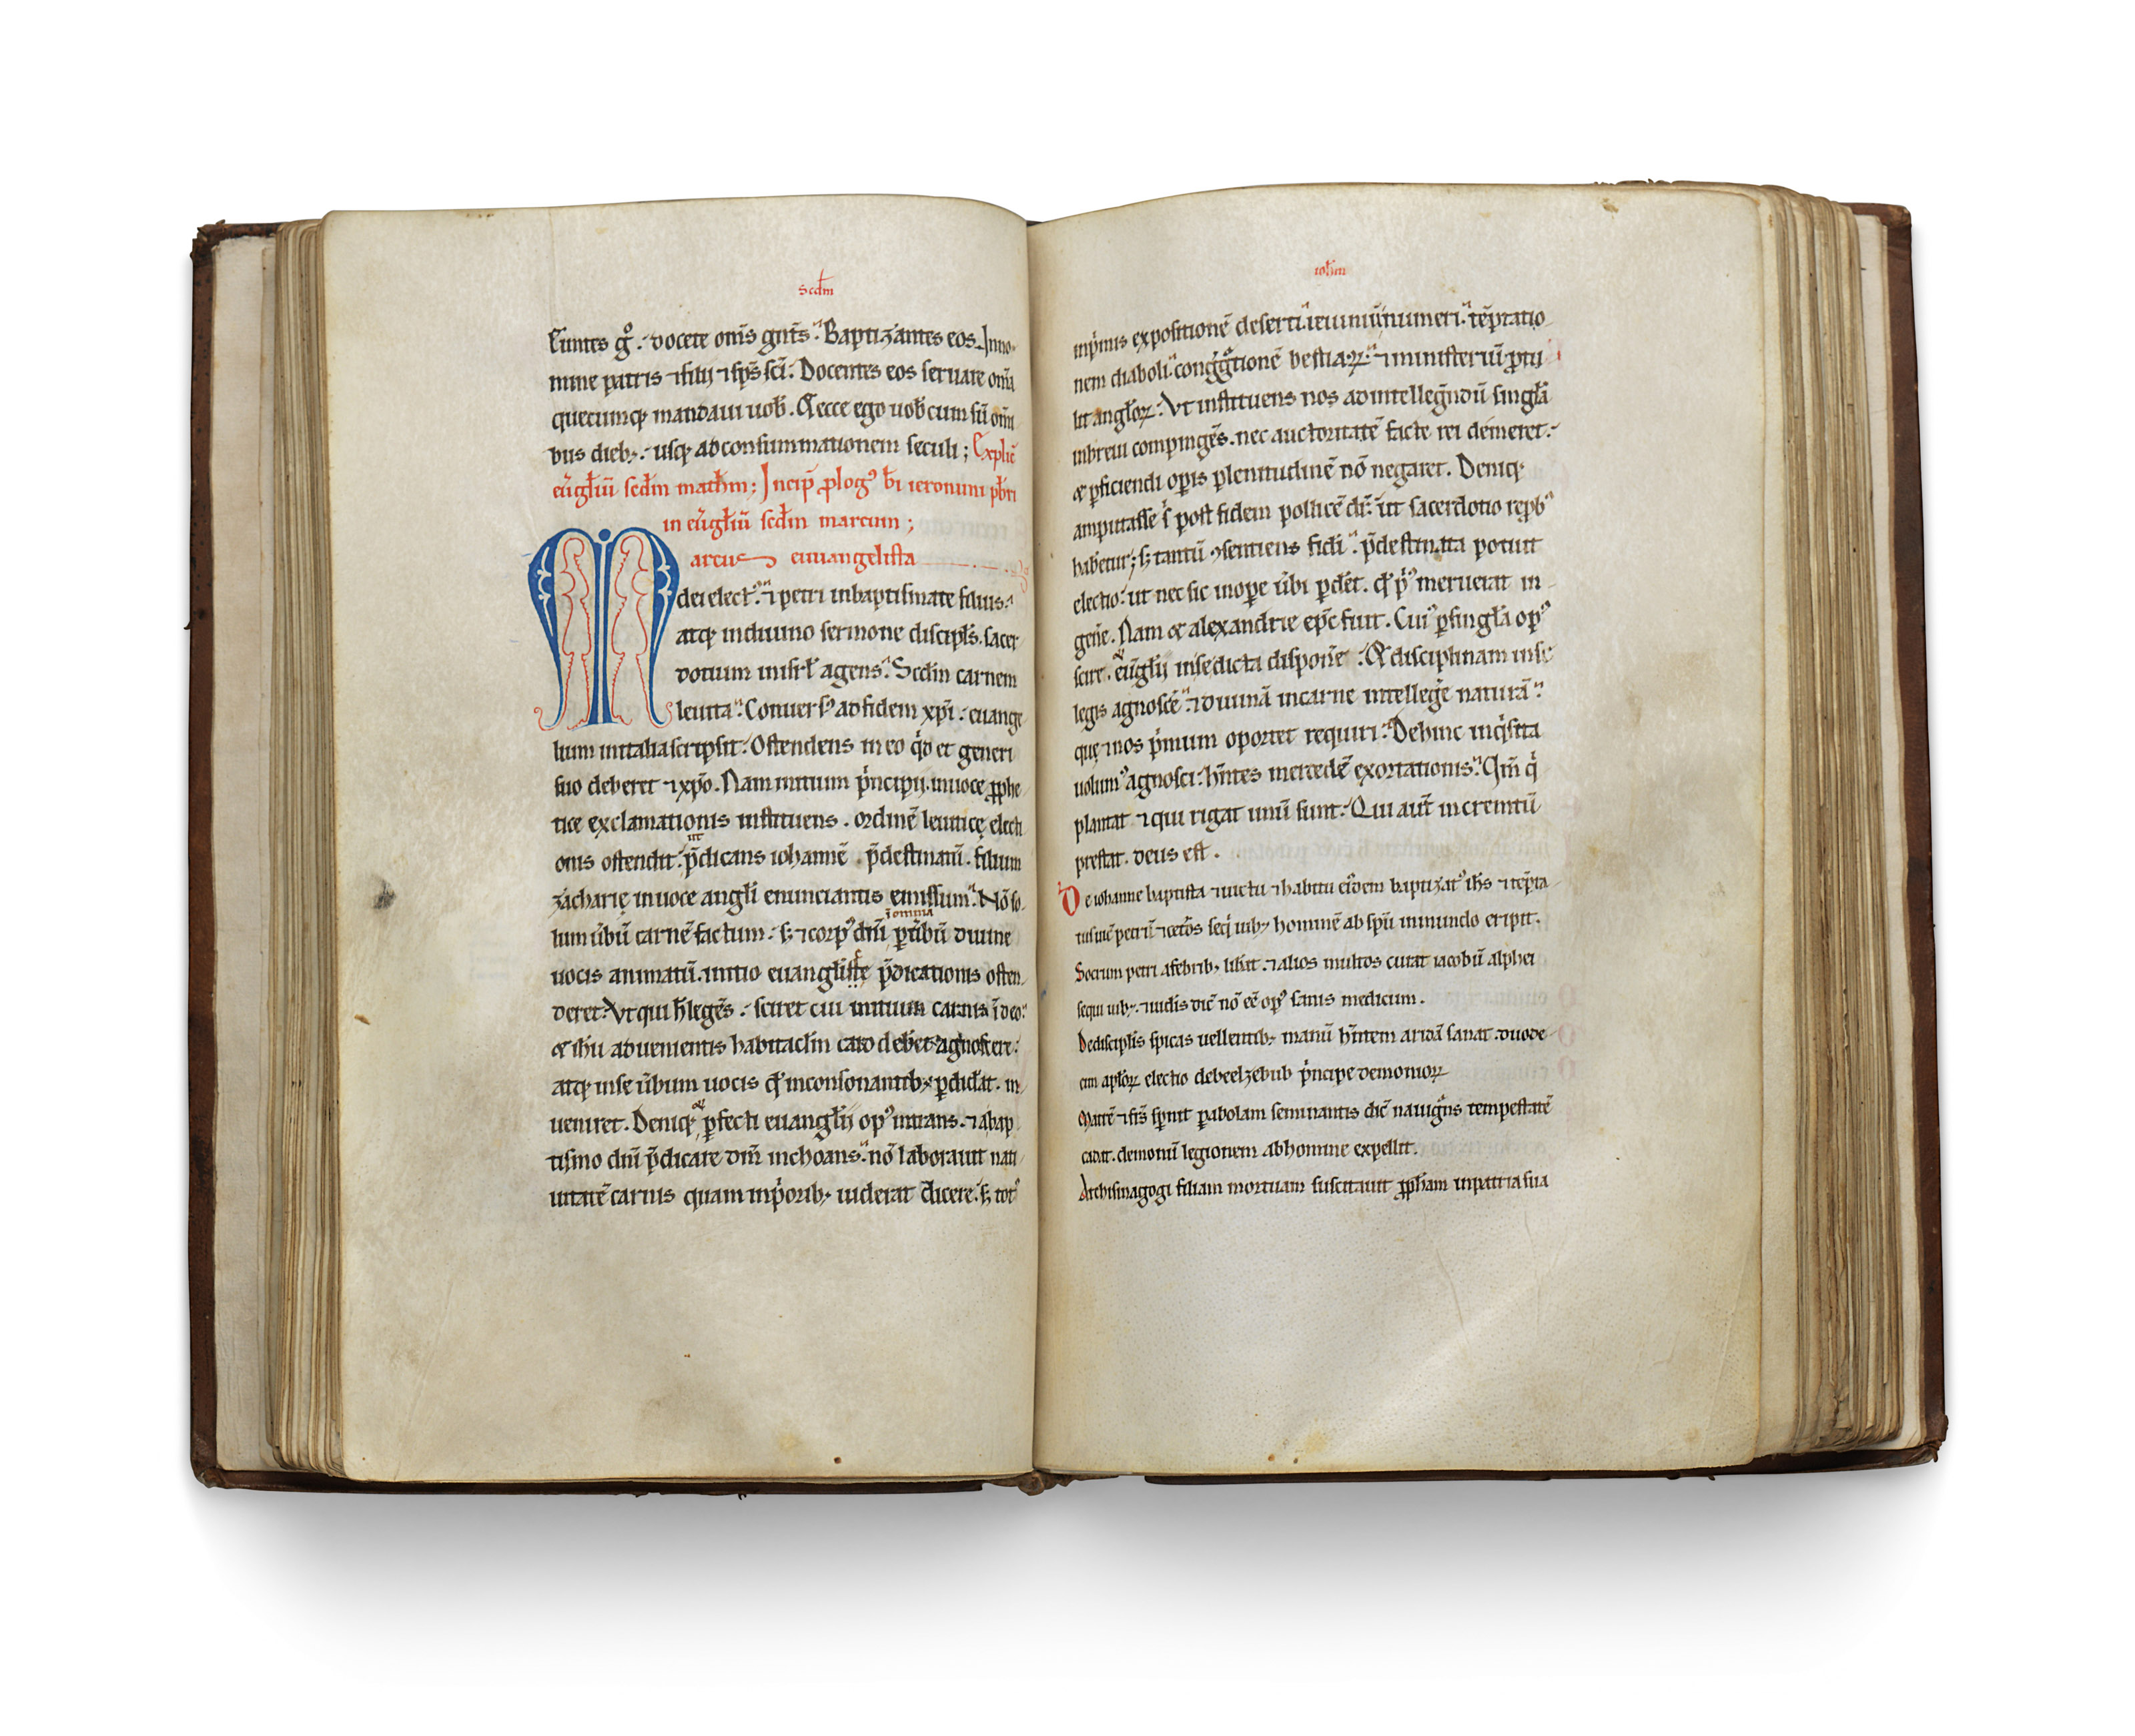 scdm
Euntes gͦ. docete om̄s gn̄ts. Baptizantes eos. Inno
mine patris ⁊ filij ⁊ sp̄s sc̄i. Docentes eos seruare om̄ia
quecumq; mandaui uob̄. Et ecce ego uob̄cum sū om̄i
bus dieb;. usq; adconsummationem seculi; Explic̄
euḡliū scdm math̄m; Incip̄ ꝓlogꝰ bi ieronimi pb̄ri
in euḡliū scdm marcum;
Marcus euuangelista
dei elect⁹. ⁊ petri inbaptismate filius.
atq; indiuino sermone discipl̄s. sacer
dotium inisrl̄ agens. Scdm carnem
leuita. Conuersꝰ adfidem xp̄i. euange
lium initalia scripsit. Ostendens ineo qd̄ et generi
suo deberet ⁊ xp̄o. Nam initium p̄ncipij. inuoce ꝓphe
tice exclamationis instituens. ordinē leuitice electi
onis ostendit. ut p̄dicans iohannē. p̄destinatū. filium
zacharię inuoce angl̄i enunciantis emissum. Nō so
lum ūbū carnē factum. s; ⁊ corpꝰ dn̄i ī omnia ꝑ ūbū diuine
uocis animatū. initio euangl̄iste p̄dicationis osten
deret. Vt qui h̄ legēs. sciret cui initium carnis ī deo.
& ih̄u aduenientis habitaclm̄ caro deb̄et agnoscere.
atq; inse ūbum uocis qd̄ inconsonantib; ꝑdid̄at. in
ueniret. Deniq; ꝑfecti euangl̄ij opꝰ intrans. ⁊ abap
tismo dn̄i p̄dicare dm̄ inchoans. nō laborauit nati
uitatē carnis quam inp̄orib; uiderat dicere. s; totꝰ
ioh̄m
inp̄mis expositionē deserti. ieiuniū numeri. tēptatio
nem diaboli. congḡgationē bestiaꝝ. ⁊ ministeriū ꝓtu
lit angl̄oꝝ. Vt instituens nos adintellegn̄dū singl̄a
inbreui compingēs. nec auctoritatē facte rei demeret.
& ꝑficiendi oꝑis plenitudinē nō negaret. Deniq;
amputasse s̄ post fidem pollicē dr̄. ut sacerdotio repbꝰ
habēetur; s; tantū ꝯsentiens fidi. p̄destinata potuit
electio. ut nec sic inope ūbi ꝑdēt. qd̄ pꝰ meruerat in
gen̄e. Nam & alexandrie ep̄c fuit. Cuiꝰ ꝑ singl̄a opꝰ
scire. euḡlij inse dicta disponēe. Et disciplinam inse
legis agnoscē. ⁊ diuinā incarne intellegēe naturā.
quę inos p̄mum oportet requiri. Dehinc inq̄sita
uolumꝰ agnosci. h̄ntes mercedē exortationis. Qm̄ q̄
plantat ⁊ qui rigat unū sunt. Qui aut̄ incremtū
prestat. deus est.
De iohanne baptista ⁊ uictu ⁊ habitu ei⁹dem baptizatꝰ ih̄s ⁊ tēpta
tus sequi iub; hominē ab sp̄u inmundo eripit.
Socrum petri afebrib; lib̄at. ⁊ alios multos curat iacobū alphei
sequi iub;. ⁊ uidis dic̄ nō ēe opꝰ sanis medicum.
Dediscipl̄is spicas uellentib; manū h̄ntem aridā sanat. duode
cim apl̄oꝝ electio debeelzebub p̄ncipe demonioꝝ
Matrē ⁊ frs̄ spnit ꝑabolam seminantis dic̄ nauign̄s tempestatē
demoniū legionem abhomine expellit.
Archisinagogi filiam mortuam suscitauit ꝓph̄am inpatria sua